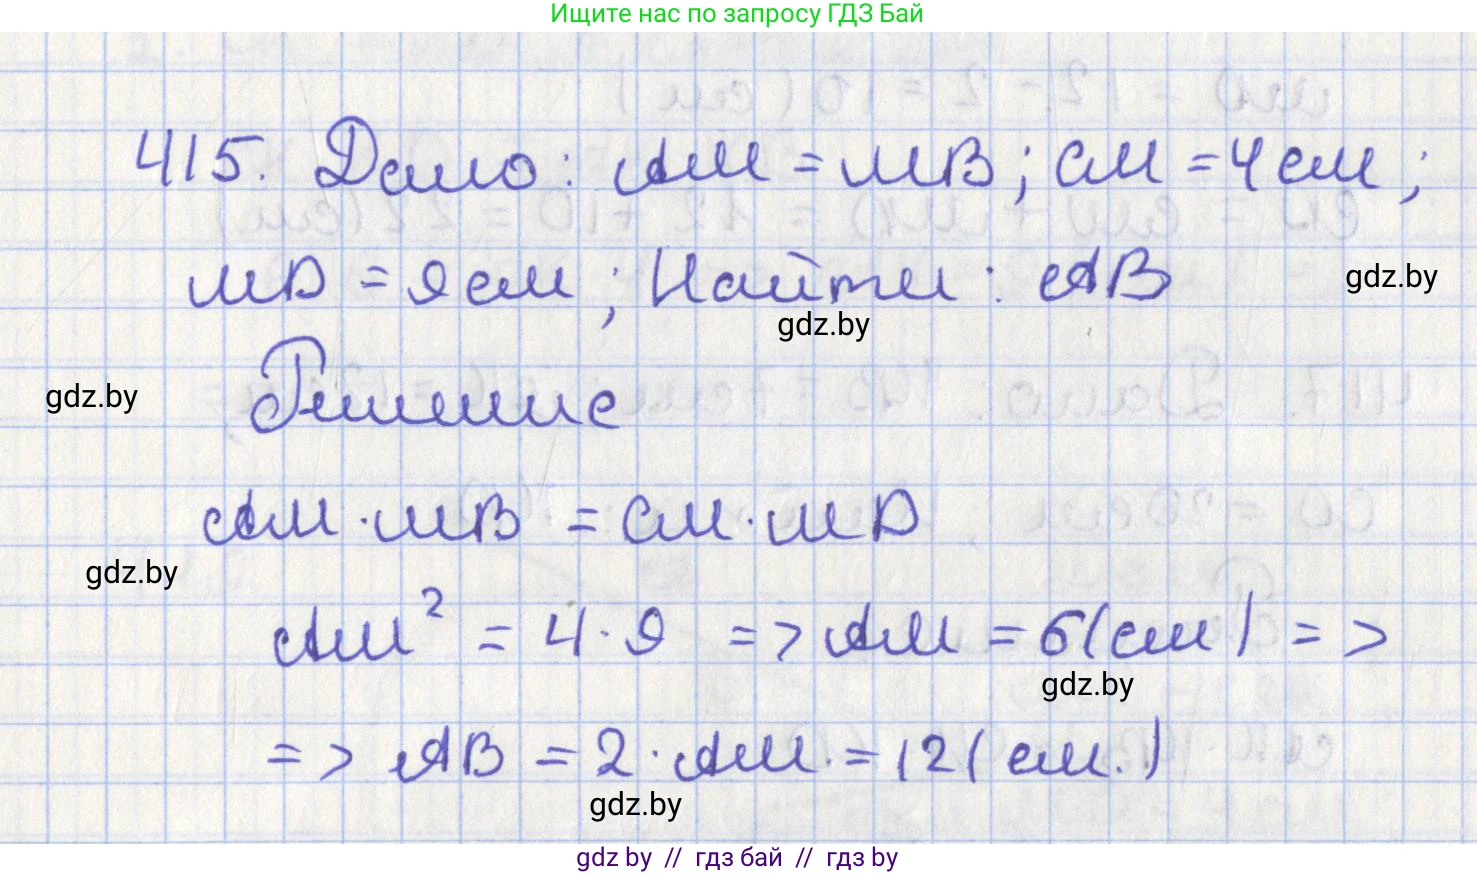 Ищите нас по запросу ГДЗ Бай
415. Дано: AM = MB; CM = 4 см;
MD = 9 см; Найти: AB
gdz.by
gdz.by
Решение
gdz.by
AM · MB = CM · MD
gdz.by
AM² = 4 · 9 => AM = 6 (см) =>
gdz.by
=> AB = 2 · AM = 12 (см.)
gdz.by
gdz by // гдз бай // гдз by